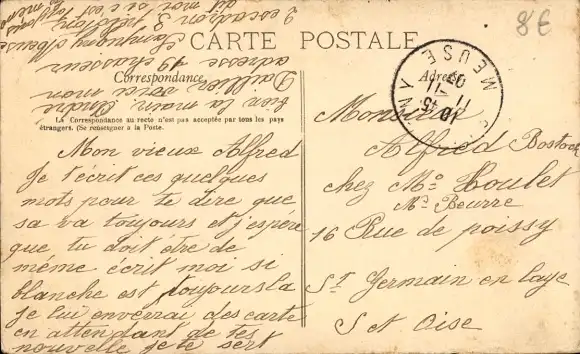 8€
CARTE POSTALE
Correspondance
Adresse
La Correspondance au recto n'est pas acceptée par tous les pays
étrangers. (Se renseigner à la Poste.
MEUSE
Mon vieux Alfred
Je t'écrit ces quelques
mots pour te dire que
sa va toujours et j'espére
que tu doit etre de
méme écrit moi si
blanche est toujours la
je lui enverrai des carte
en attendant de tes
nouvelle je te sert
bien la main André
Daillier voici mon
adresse 19 chasseur
2 escadron 3
Monsieur
Alfred Bostock
chez Mr Houlet
Md Beurre
16 Rue de poissy
St Germain en laye
S et Oise